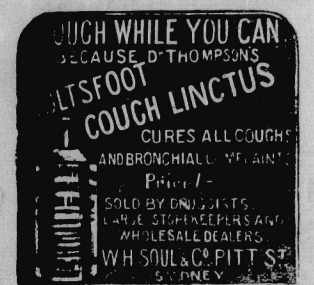 OUGH WHILE YOU CAN
BECAUSE DR THOMPSON'S
LTSFOOT
COUGH LINCTUS
CURES ALL COUGHS
AND BRONCHIAL
Price 1/-
SOLD BY DRUGGISTS
LARGE STOREKEEPERS AND
WHOLESALE DEALERS.
W.H SOUL & CO. PITT ST
SYDNEY